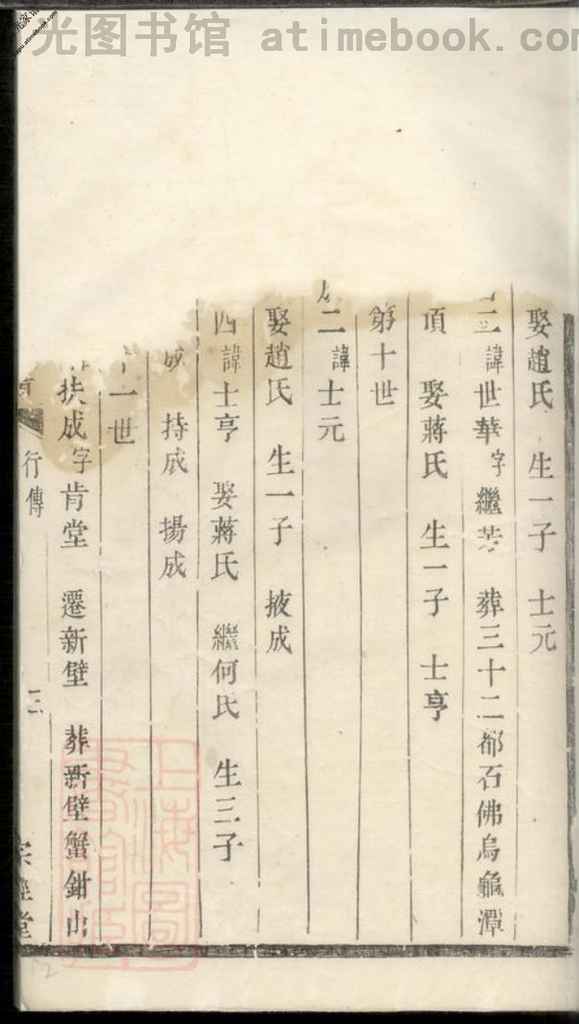 光图书馆 atimebook.com
娶趙氏 生一子 士元
三諱世華字繼芳 葬三十二都石佛烏龜潭
項 娶蔣氏 生一子 士亨
第十世
二諱士元
娶趙氏 生一子 掖成
四諱士亨 娶蔣氏 繼何氏 生三子
成 持成 揚成
一世
扶成字肯堂 遷新壁 葬新壁蟹鉗山
行傳
三
堂